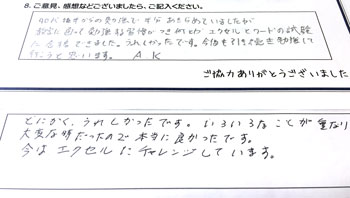 8. ご意見、感想などございましたら、ご記入ください。
40代後半からの勉強で半分あきらめていましたが
勉強 習慣がつき何とか エクセルとワードの試験
に合格できました。うれしかったです。今後も引き続き勉強して
行こうと思います。 A K
ご協力ありがとうございました
とにかく、うれしかったです。いろいろなことが重なり
大変な時だったので本当に良かったです。
今はエクセルにチャレンジしています。